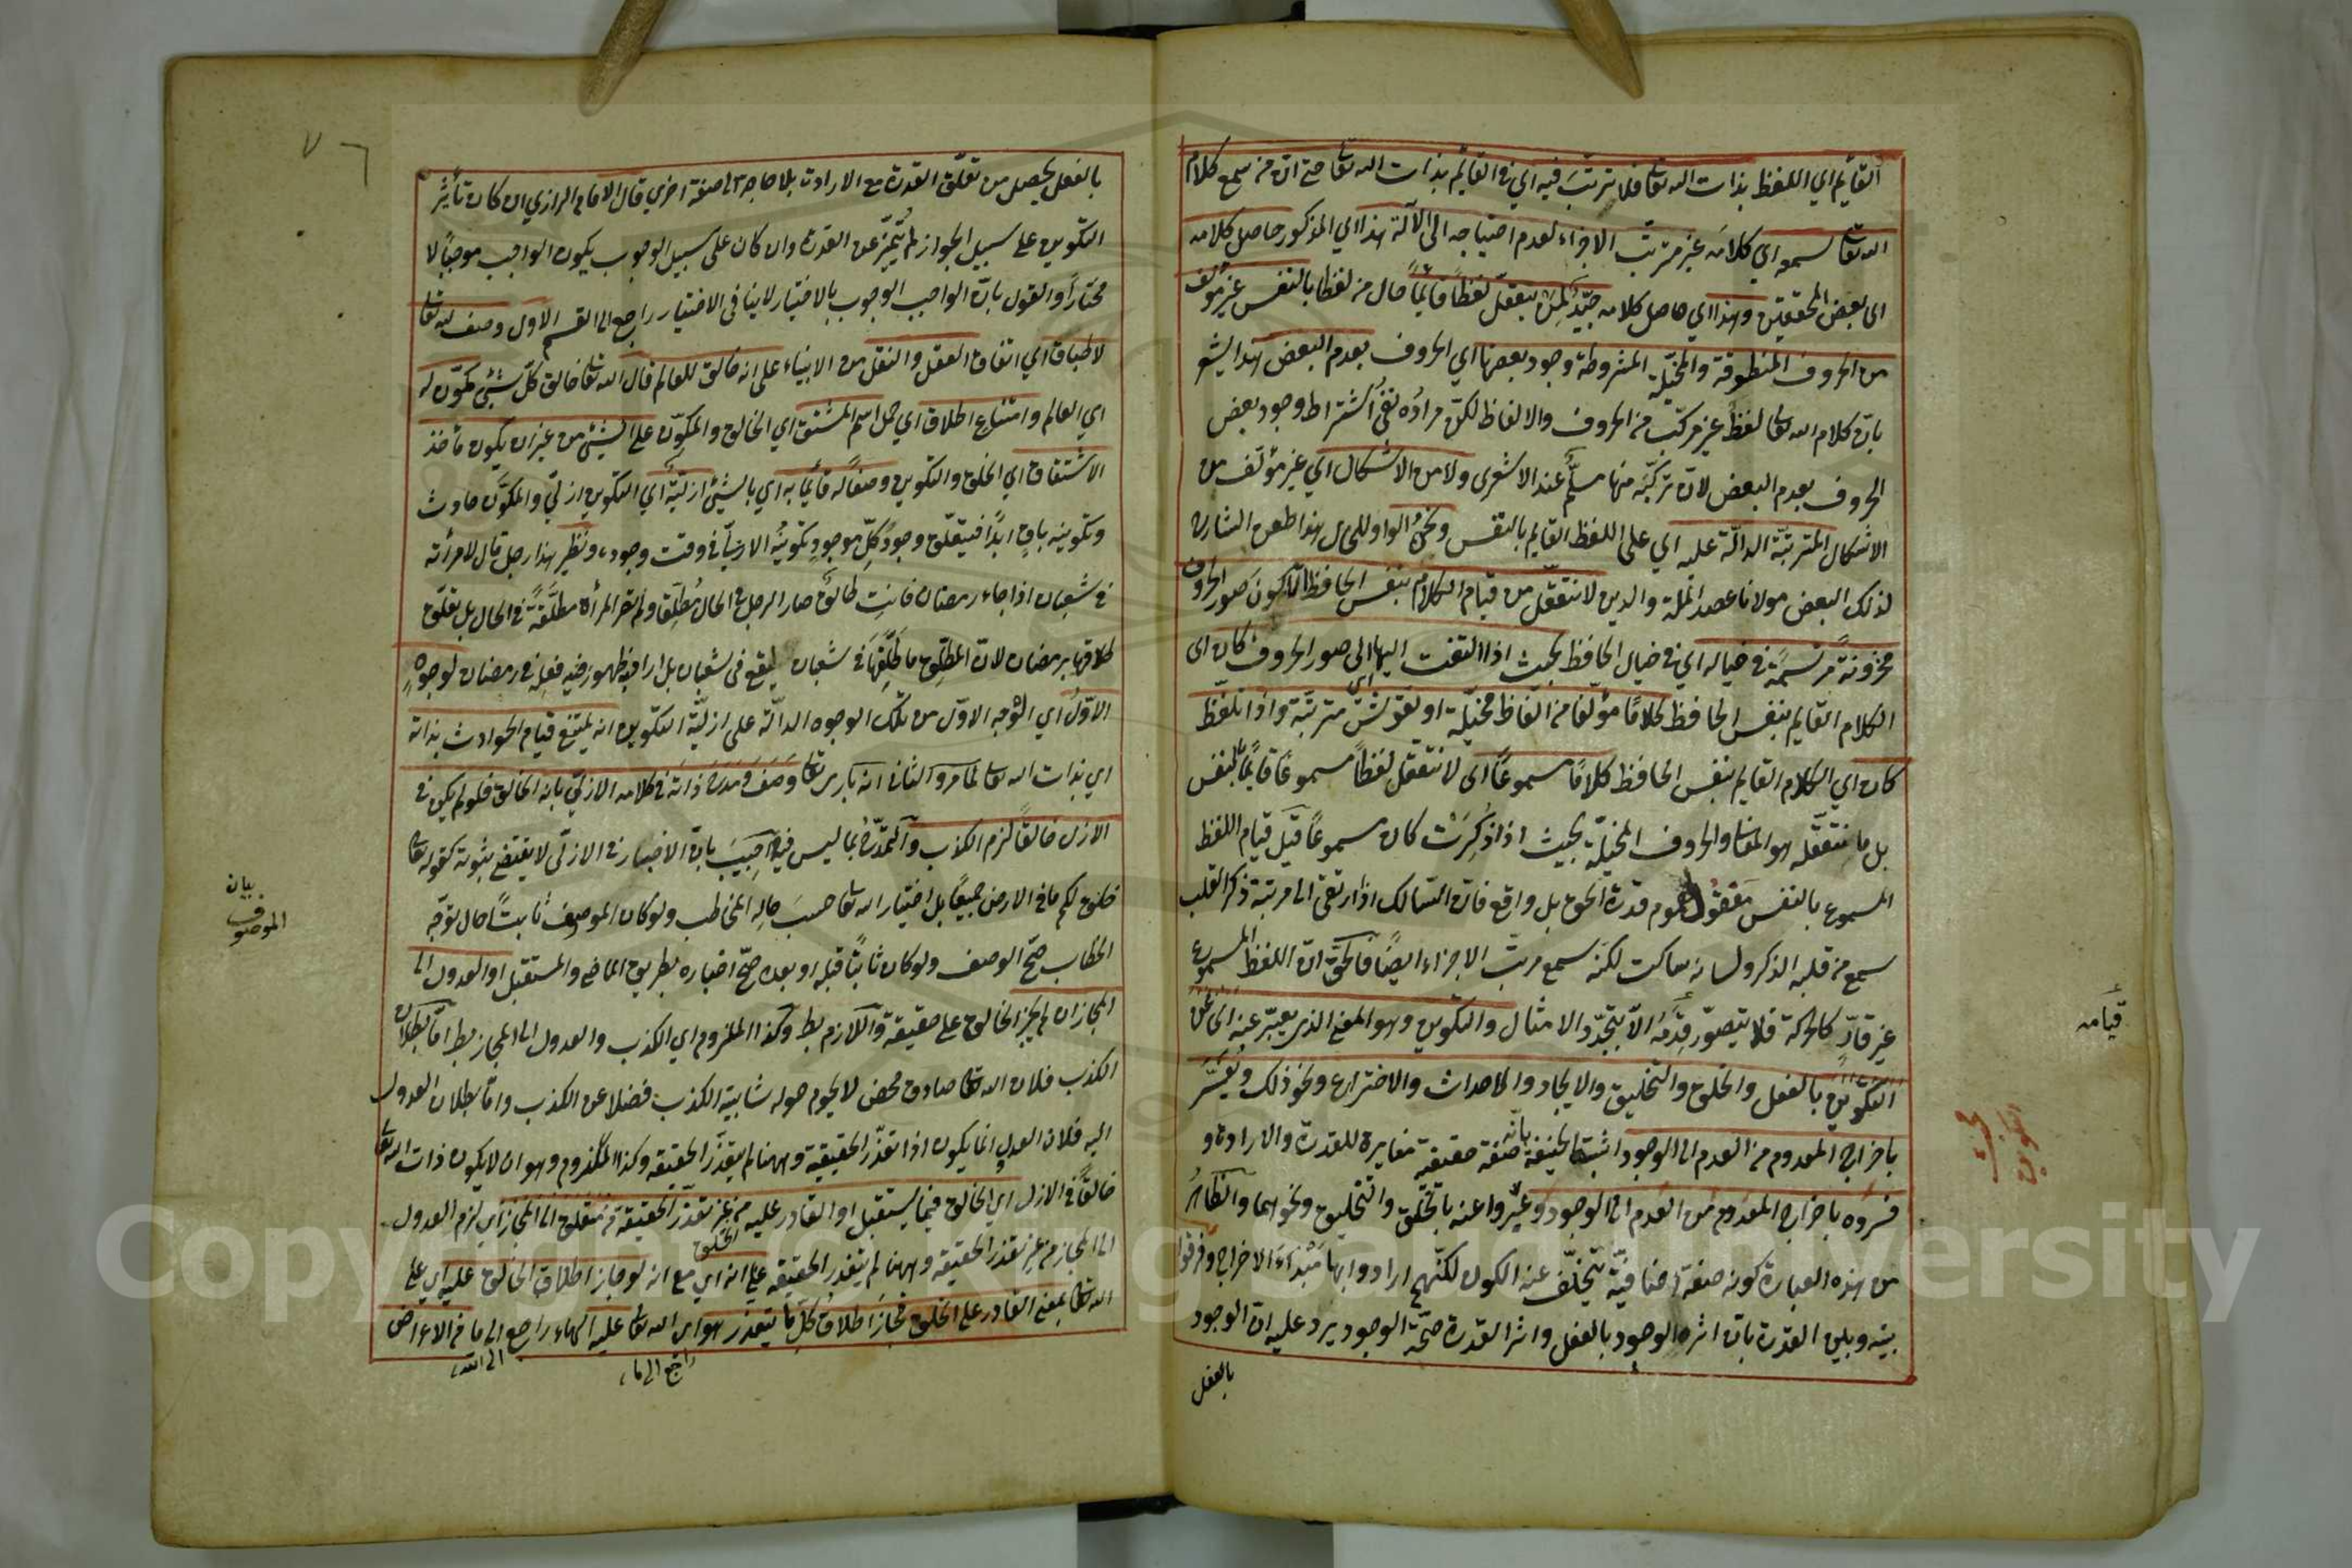 القائم اي اللفظ بذات الله تعا فلا ترتب فيه اي في القائم بذات الله تعا حتى ان من سمع كلام
الله تعا سمعه اي كلامه غير مترتب الاجزاء لعدم احتياجه الى الآلة هذا اي المذكور حاصل كلامه
اي بعض المحققين وهذا اي حاصل كلامه جيد لمن يتعقل لفظا قائما حال من لفظا بالنفس غير مؤلف
من الحروف المنطوقة والمخيلة المشروطة وجود بعضها اي الحروف بعدم البعض هذا يشعر
بان كلام الله تعا لفظ غير مركب من الحروف والالفاظ لكن مراده نفي اشتراط وجود بعض
الحروف بعدم البعض لان تركبه منها مسلم عند الاشعرى ولا من الاشكال اي غير مؤلف من
الاشكال المترتبة الدالة عليه اي على اللفظ القايم بالنفس ونحن الواو للحال هذا طعن الشارح
لذلك البعض مولانا عضد الملة والدين لا نتعقل من قيام الكلام بنفس الحافظ الا كون صور الحروف
مخزونة مرتسمة في خياله اي في خيال الحافظ بحيث اذا التفت اليها الى صور الحروف كان اى
الكلام القايم بنفس الحافظ كلاما مؤلفا من الفاظ مخيلة او نقوش مترتبة واذا تلفظ
كان اي الكلام القايم بنفس الحافظ كلاما مسموعا اى لا نتعقل لفظا مسموعا قائما بنفس
بل ما نتعقله هو المعنا والحروف المخيلة بحيث اذا ذكرت كان مسموعا قيل قيام اللفظ
المسموع بالنفس معقول لعموم قدرة الحق بل واقع فان السالك اذا ارتقى الى مرتبة ذكر القلب
سمع من قلبه الذكر ولسانه ساكت لكنه سمع مرتب الاجزاء ايضا فالحق ان اللفظ المسموع
غير قار كالحركة فلا يتصور قدمه الا بتجدد الامثال والتكوين وهو المعنى الذى يعبر عنه اى عن
التكوين بالفعل والخلق والتخليق والايجاد والاحداث والاختراع ونحو ذلك ويفسر
باخراج المعدوم من العدم الى الوجود اثبته الحنيفة بانه صفة حقيقية مغايرة للقدرة والارادة و
فسروه باخراج المعدوم من العدم الى الوجود وعبروا عنه بالخلق والتخليق ونحوهما والظاهر
من هذه العبارة كونه صفة اضافية يتخلف عنه الكون لكنهم ارادوا بها مبتداء الاخراج وفرقوا
بينه وبين القدرة بان اثره الوجود بالفعل واثر القدرة صحة الوجود يرد عليه ان الوجود
بالفعل
قيامه
التكوين
بالفعل يحصل من تعلق القدرة مع الارادت بلا حاجة الى صفة اخرى قال الامام الرازي ان كان تأثير
التكوين على سبيل الجواز لم يتميز عن القدرة وان كان على سبيل الوجوب يكون الواجب موجبا لا
مختارا والقول بان الواجب الوجوب بالاختيار لا ينافى الاختيار راجع الى القسم الاول وصف لله تعا
لاطباق اي اتفاق العقل والنقل من الانبياء على انه خالق للعالم قال الله تعا خالق كل شيء مكون له
اي العالم وامتناع اطلاق اي حمل اسم المشتق اي الخالق والمكون على الشيء من غير ان يكون مأخذ
الاشتقاق اي الخلق والتكوين وصفا له قائما به اي بالشيء ازلية اي التكوين ازلي والمكون حادث
وتكوينه باق ابدا فيتعلق وجود كل موجود بتكوينه الازلي في وقت وجوده ونظير هذا رجل قال لامرأته
في شعبان اذا جاء رمضان فانت طالق صار الرجل في الحال مطلقا ولم تصر المرأة مطلقة في الحال بل يتعلق
طلاقها برمضان لان المطلق ما طلقها في شعبان ليقع فى شعبان بل اراد ظهور فيه فعله في رمضان لوجوه
الاول اي الوجه الاول من تلك الوجوه الدالة على ازلية التكوين انه يمتنع قيام الحوادث بذاته
اي بذات الله تعا لما مر والثاني انه باري تعا وصف ومدح ذاته في كلامه الازلي بانه الخالق فلو لم يكن في
الازل خالقا لزم الكذب والتمدح بما ليس فيه اجيب بان الاخبار في الازلي لا يقتضي ثبوته كقوله تعا
خلق لكم ما في الارض جميعا بل اختيار الله تعا حسب حاله المخاطب ولو كان الموصوف ثابتا حال توجه
الخطاب صح الوصف ولو كان ثابتا قبله او بعده صح اخباره بطريق الماضي والمستقبل او العدول الى
المجاز ان لم يجز الخالق على حقيقة واللازم بط وكذا الملزوم اي الكذب والعدول الى المجاز بط اما بطلان
الكذب فلان الله تعا صادق محض لا يحوم حوله شايبة الكذب فضلا عن الكذب واما بطلان العدول
اليه فلان العدول انما يكون اذا تعذر الحقيقية وههنا لم يتعذر الحقيقه وكذا الملزوم وهو ان لا يكون ذات الله تعا
خالقا في الازل اي الخالق فيما يستقبل او القادر عليه من غير تعذر الحقيقة متعلق الى المجاز اي لزم العدول
الى المجاز من غير تعذر الحقيقه وههنا لم يتعذر الحقيقه على انه اي مع انه لو جاز اطلاق الخالق عليه اي على
الله تعا بمعنى القادر على الخلق لجاز اطلاق كل ما يتعذر هو اي الله تعا عليه الهاء راجع الى ما من الاعراض
راجع الى ما
الى الله
بيان
الموصوف